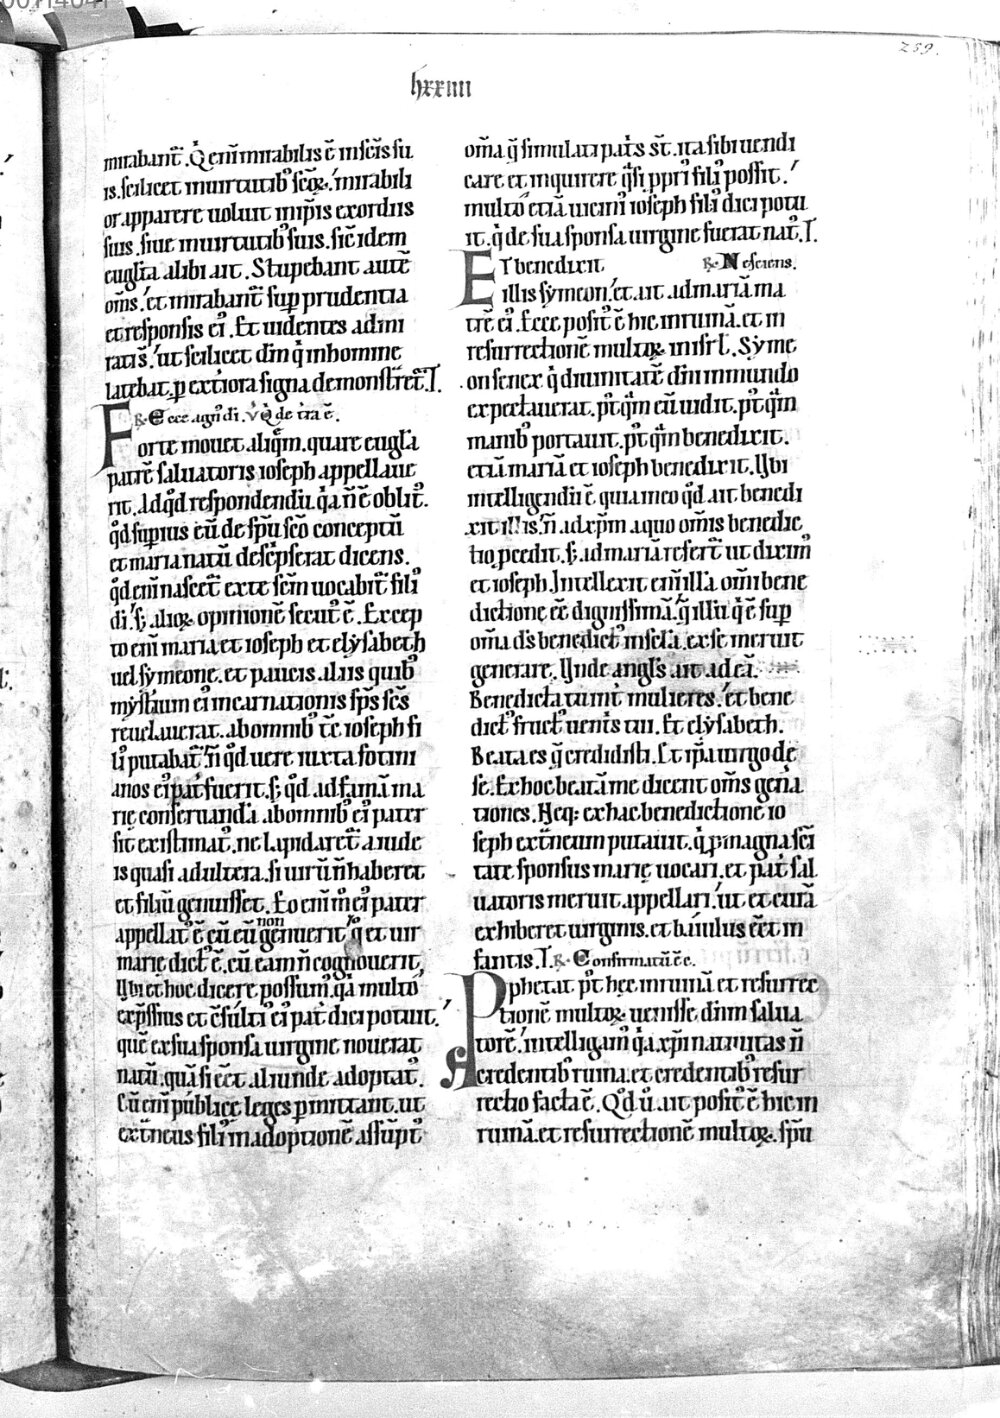 259.
lxxiiii
mirabant᷑. Q̇ eni᷑ mirabilis e᷑ in sc̄is su
is. scilicet in uirtutib᷒ sc̄oꝝ. mirabili
or apparere uoluit in ip̄is exordiis
suis. siue in uirtutib᷒ suis. sic̄ idem
eugl̄ia alibi ait. Stupebant aut̄e
om̄s. et mirabant᷑ sup prudentia
et responsis ei᷒. Et uidentes admi
rati s̄. ut scilicet dīm q̇ in homine
latebat. p exteriora signa demonstrēt. T.
R. Ecce agn᷒ di. V Q̇ de t̄ra ē.
Forte mouet aliq̄m. quare eugl̄a
patrē saluatoris ioseph appellaue
rit. Ad q̇d respondendū. q̇a n̄ ē oblit᷒.
q̇d sup̄ius eū de sp̄u sc̄o conceptū
et maria natū desc̄pserat dicens.
q̇d eni᷑ nascet᷑ ex te sc̄m uocabit᷑ fili᷒
di᷑. s; alioꝝ opinionē secut᷒ ē. Excep
to eni᷑ maria et ioseph et elysabeth
uel symeone. et paucis aliis quib᷒
myst̄ium ei᷒ incarnationis sp̄s sc̄s
reuelauerat. ab omnib᷒ t̄e ioseph fi
li᷒ putabat᷑. n̄ q̇d uere iuxta fotini
anos ei᷒ pat̄ fuerit. s; q̇d ad famā ma
rię conseruandā ab omnib᷒ ei᷒ pater
sit existimat᷒. ne lapidaret᷑ a iude
is quasi adultera. si uirū n̄ haberet
et filiū genuisset. Eo eni᷑ m᷒ ei᷒ pater
appellat᷒ ē cū eū non genuerit q᷒ et uir
marię dict᷒ ē. cū eam n̄ cognouerit,
Ubi et hoc dicere possum᷒. q̇a multo᷒
exp̄ssius et ei᷒ pat̄ dici potuit.
quē ex sua sponsa uirgine nouerat
natū. quā si eēt aliunde adoptat᷒.
Cū eni᷑ publicę leges p̄mittant. ut
ext̄neus fili᷒ in adoptionē assūpt᷒
om̄a q̇ simulati pat̄s st̄. ita sibi uendi
care et inquirere q̇si ppri᷒ fili᷒ possit.
multo᷒ etiā uicini᷒ ioseph fili᷒ dici potu
it. q̇ de sua sponsa uirgine fuerat nat᷒. T.
Et benedixit R. Nesciens.
illis symeon. et ait ad mariā ma
trē ei᷒. Ecce posit᷒ ē hic in ruinā. et in
resurrectionē multoꝝ in isrl̄. Syme
on senex q̇ diuinitatē dīn in mundo
expectauerat. pt̄ q̄m eū uidit. pt̄ q̄m
manib᷒ portauit. pt̄ q̄m benedixit.
etiā mariā et ioseph benedixit. Ubi
intelligendū ē quia in eo q̇d ait benedi
xit illis. n̄ ad xp̄m a quo om̄is benedic
tio pcedit. s; ad mariā refert᷑ ut dixim᷒
et ioseph. Intellexit eni᷑ illā om̄i bene
dictione eē dignissimā. q̇ illū q̇ ē sup
om̄a ds̄ benedict᷒ in secl̄a. ex se meruit
generare. Unde angl̄s ait ad eā.
Benedicta tu int̄ mulieres. et bene
dict᷒ fruct᷒ uent̄s tui. Et elysabeth.
Beata es q̇ credidisti. Et ip̄a uirgo de
se. Ex hoc beatā me dicent om̄s gena
tiones. Neq; ex hac benedictione io
seph ext̄neum putauit. q̇ p magna sc̄i
tate sponsus marię uocari. et pat̄ sal
uatoris meruit appellari. ut et curā
exhiberet uirginis. et baiulus eēt in
fantis. T. R. Confirmatū ē c.
Pphetat pt̄ hęc in ruinā et resurrec
tionē multoꝝ. uenisse dīm salua
torē. intelligam᷒ q̇a xp̄i natiuitas n̄
credentib᷒ ruina. et credentib᷒ resur
rectio facta ē. Q̇d ů ait posit᷒ ē hic in
ruinā. et resurrectionē multoꝝ. sp̄u